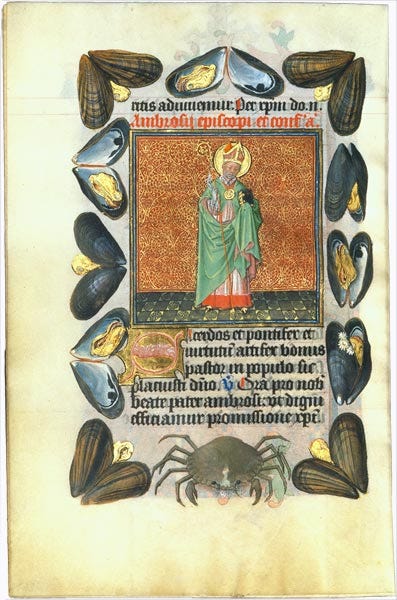 ritis adiuuemur. Per xpm do. n.
Ambrosij episcopi et conf. a.
Sacerdos et pontifex et
uirtutum artifex bonus
pastor in populo sic
placuisti dño. V Ora pro nob
beate pater ambrosi. vt digni
efficiamur promissione xpi.